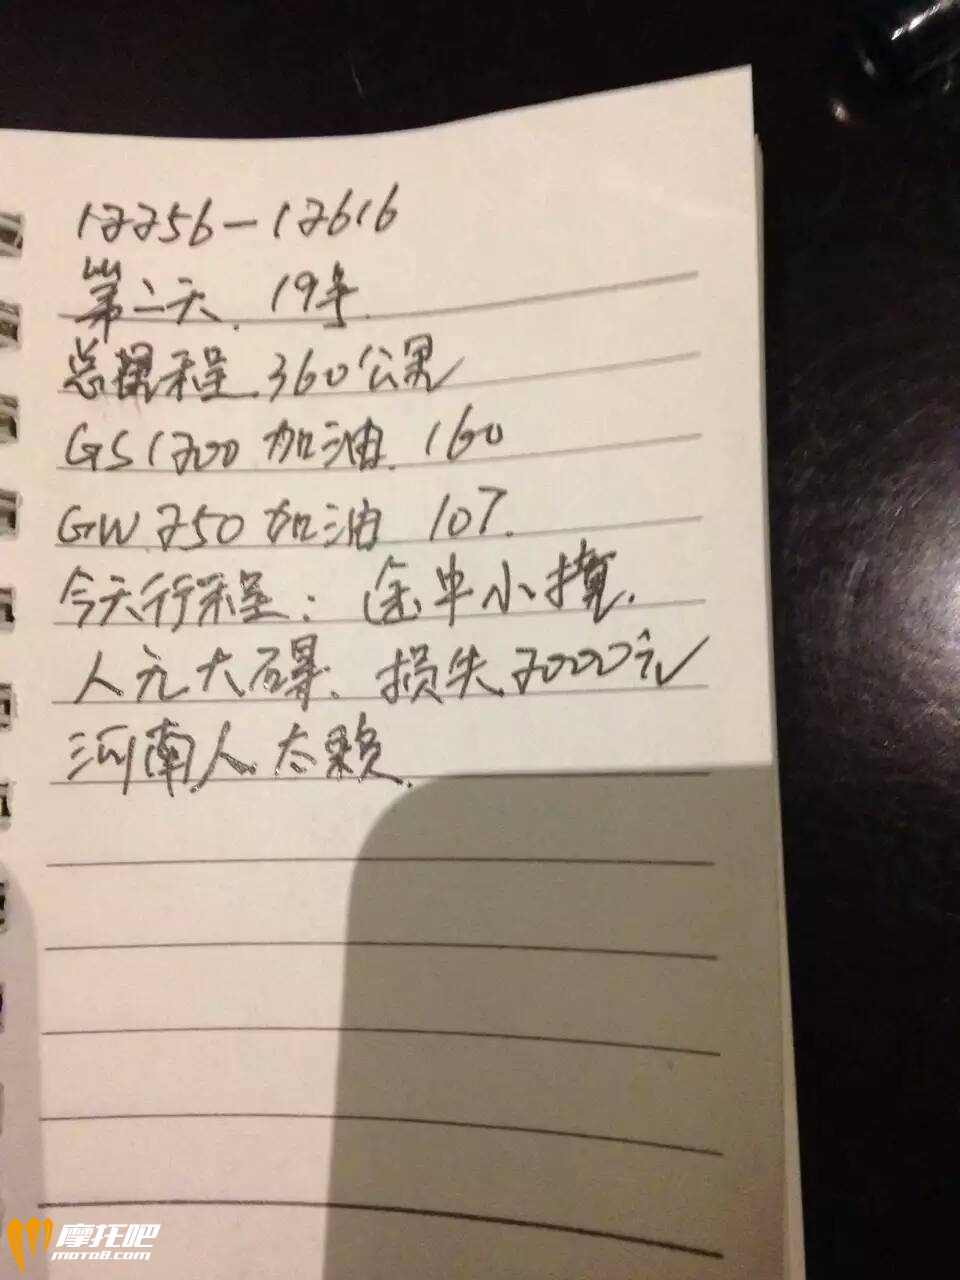 12256-12616
第二天. 19号.
总里程.360公里
GS1200加油. 160
GW.250加油 107.
今天行程: 途中小撞.
人元大碍. 损失.2000元
河南人太赖.
摩托吧
moto8.com